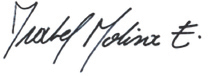 Isabel Molina E.